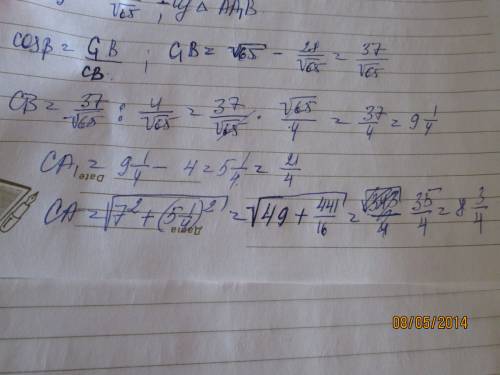 √65 ; из △ AA₁B
cosβ = C₁B/CB ; C₁B = √65 - 28/√65 = 37/√65
CB = 37/√65 : 4/√65 = 37/√65 · √65/4 = 37/4 = 9 1/4
CA₁ = 9 1/4 - 4 = 5 1/4 = 21/4
Date
CA = √(7² + (5 1/4)²) = √(49 + 441/16) = 35/4 = 8 3/4
Дата
08/05/2014